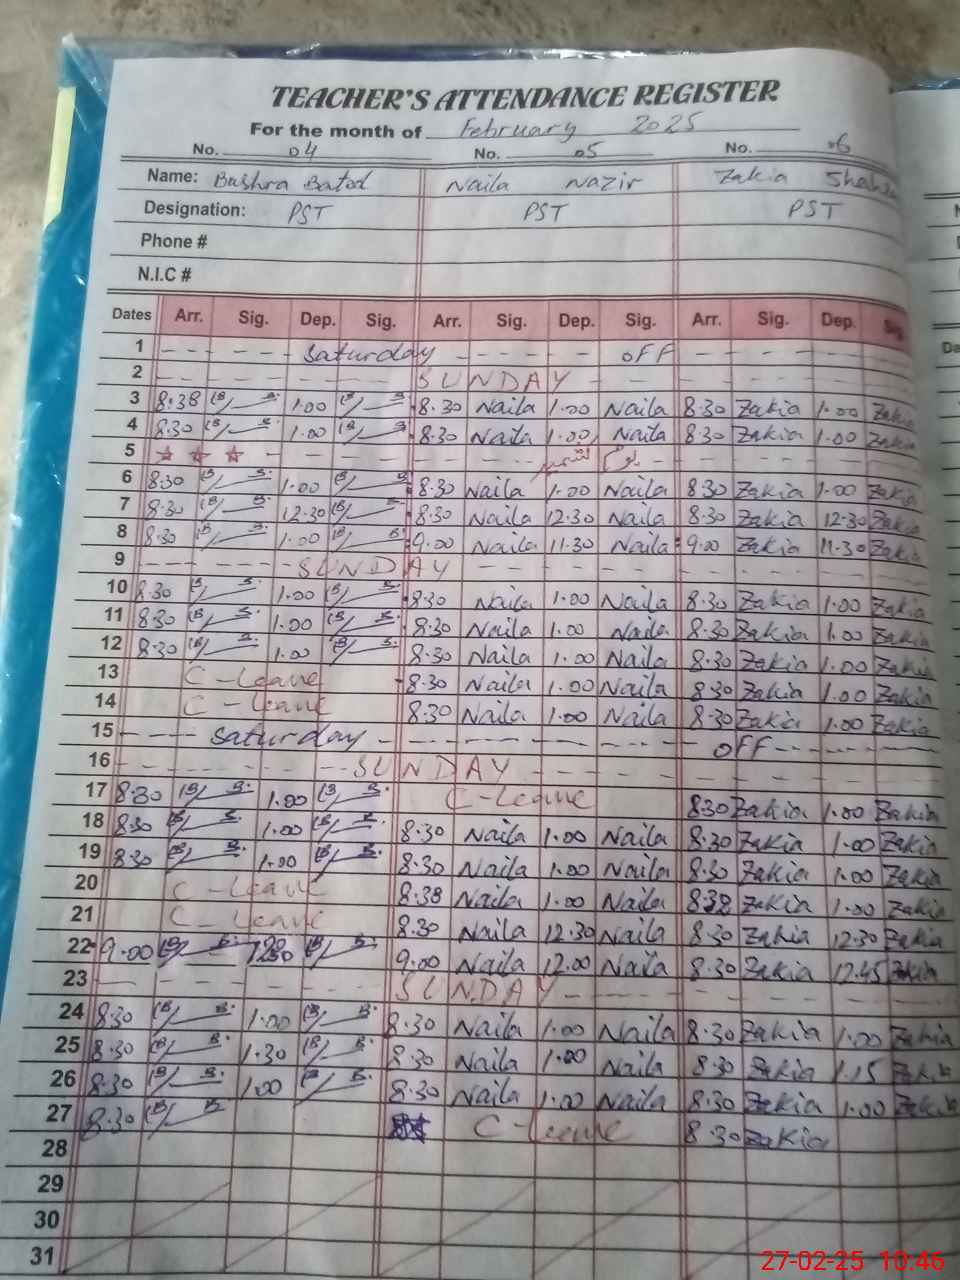 TEACHER'S ATTENDANCE REGISTER
For the month of February 2025
No. 04 No. 05 No. 06
Name: Bushra Batool Naila Nazir Zakia
Designation: PST PST PST
Phone #
N.I.C #
Dates Arr. Sig. Dep. Sig. Arr. Sig. Dep. Sig. Arr. Sig. Dep. Sig.
1 Saturday OFF
2 SUNDAY
3 8.38 B B. 1.00 B B. 8.30 Naila 1.00 Naila 8.30 Zakia 1.00 Zakia
4 8.30 B B. 1.00 B B. 8.30 Naila 1.00 Naila 8.30 Zakia 1.00 Zakia
5 ☆ ☆ ☆ یوم کشمیر
6 8.30 B B. 1.00 B B. 8.30 Naila 1.00 Naila 8.30 Zakia 1.00 Zakia
7 8.30 B B. 12.30 B B. 8.30 Naila 12.30 Naila 8.30 Zakia 12.30 Zakia
8 8.30 B B. 1.00 B B. 9.00 Naila 11.30 Naila 9.00 Zakia 11.30 Zakia
9 SUNDAY
10 8.30 B B. 1.00 B B. 8.30 Naila 1.00 Naila 8.30 Zakia 1.00 Zakia
11 8.30 B B. 1.00 B B. 8.30 Naila 1.00 Naila 8.30 Zakia 1.00 Zakia
12 8.30 B B. 1.00 B B. 8.30 Naila 1.00 Naila 8.30 Zakia 1.00 Zakia
13 C-Leave 8.30 Naila 1.00 Naila 8.30 Zakia 1.00 Zakia
14 C-Leave 8.30 Naila 1.00 Naila 8.30 Zakia 1.00 Zakia
15 Saturday OFF
16 SUNDAY
17 8.30 B B. 1.00 B B. C-Leave 8.30 Zakia 1.00 Zakia
18 8.30 B B. 1.00 B B. 8.30 Naila 1.00 Naila 8.30 Zakia 1.00 Zakia
19 8.30 B B. 1.00 B B. 8.30 Naila 1.00 Naila 8.30 Zakia 1.00 Zakia
20 C-Leave 8.38 Naila 1.00 Naila Zakia 1.00 Zakia
21 C-Leave 8.30 Naila 12.30 Naila 8.30 Zakia 12.30 Zakia
22 9.00 B B. B B. 9.00 Naila 12.00 Naila 8.30 Zakia 12.45 Zakia
23 SUNDAY
24 8.30 B B. 1.00 B B. 8.30 Naila 1.00 Naila 8.30 Zakia 1.00 Zakia
25 8.30 B B. 1.30 B B. 8.30 Naila 1.00 Naila 8.30 Zakia 1.15 Zakia
26 8.30 B B. 1.00 B B. 8.30 Naila 1.00 Naila 8.30 Zakia 1.00 Zakia
27 8.30 B B C-Leave 8.30 Zakia
28
29
30
31
27-02-25 10:46